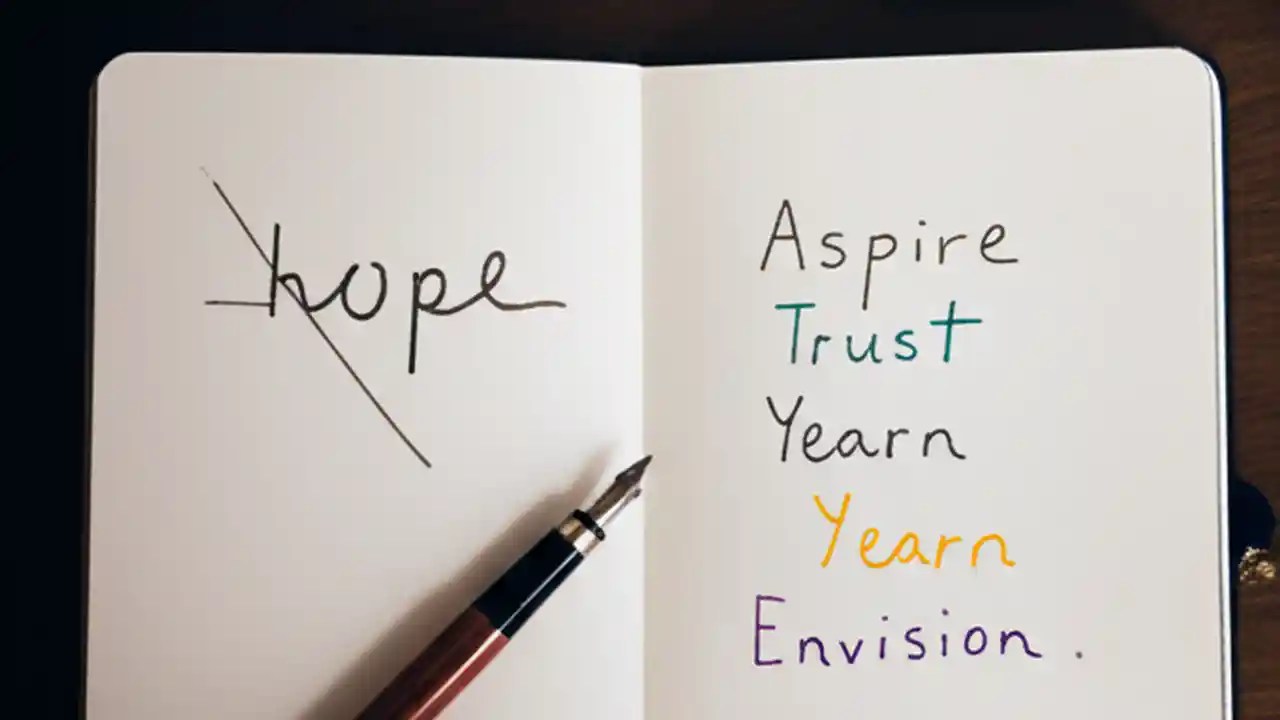 hope
Aspire
Trust
Yearn
Yearn
Envision.